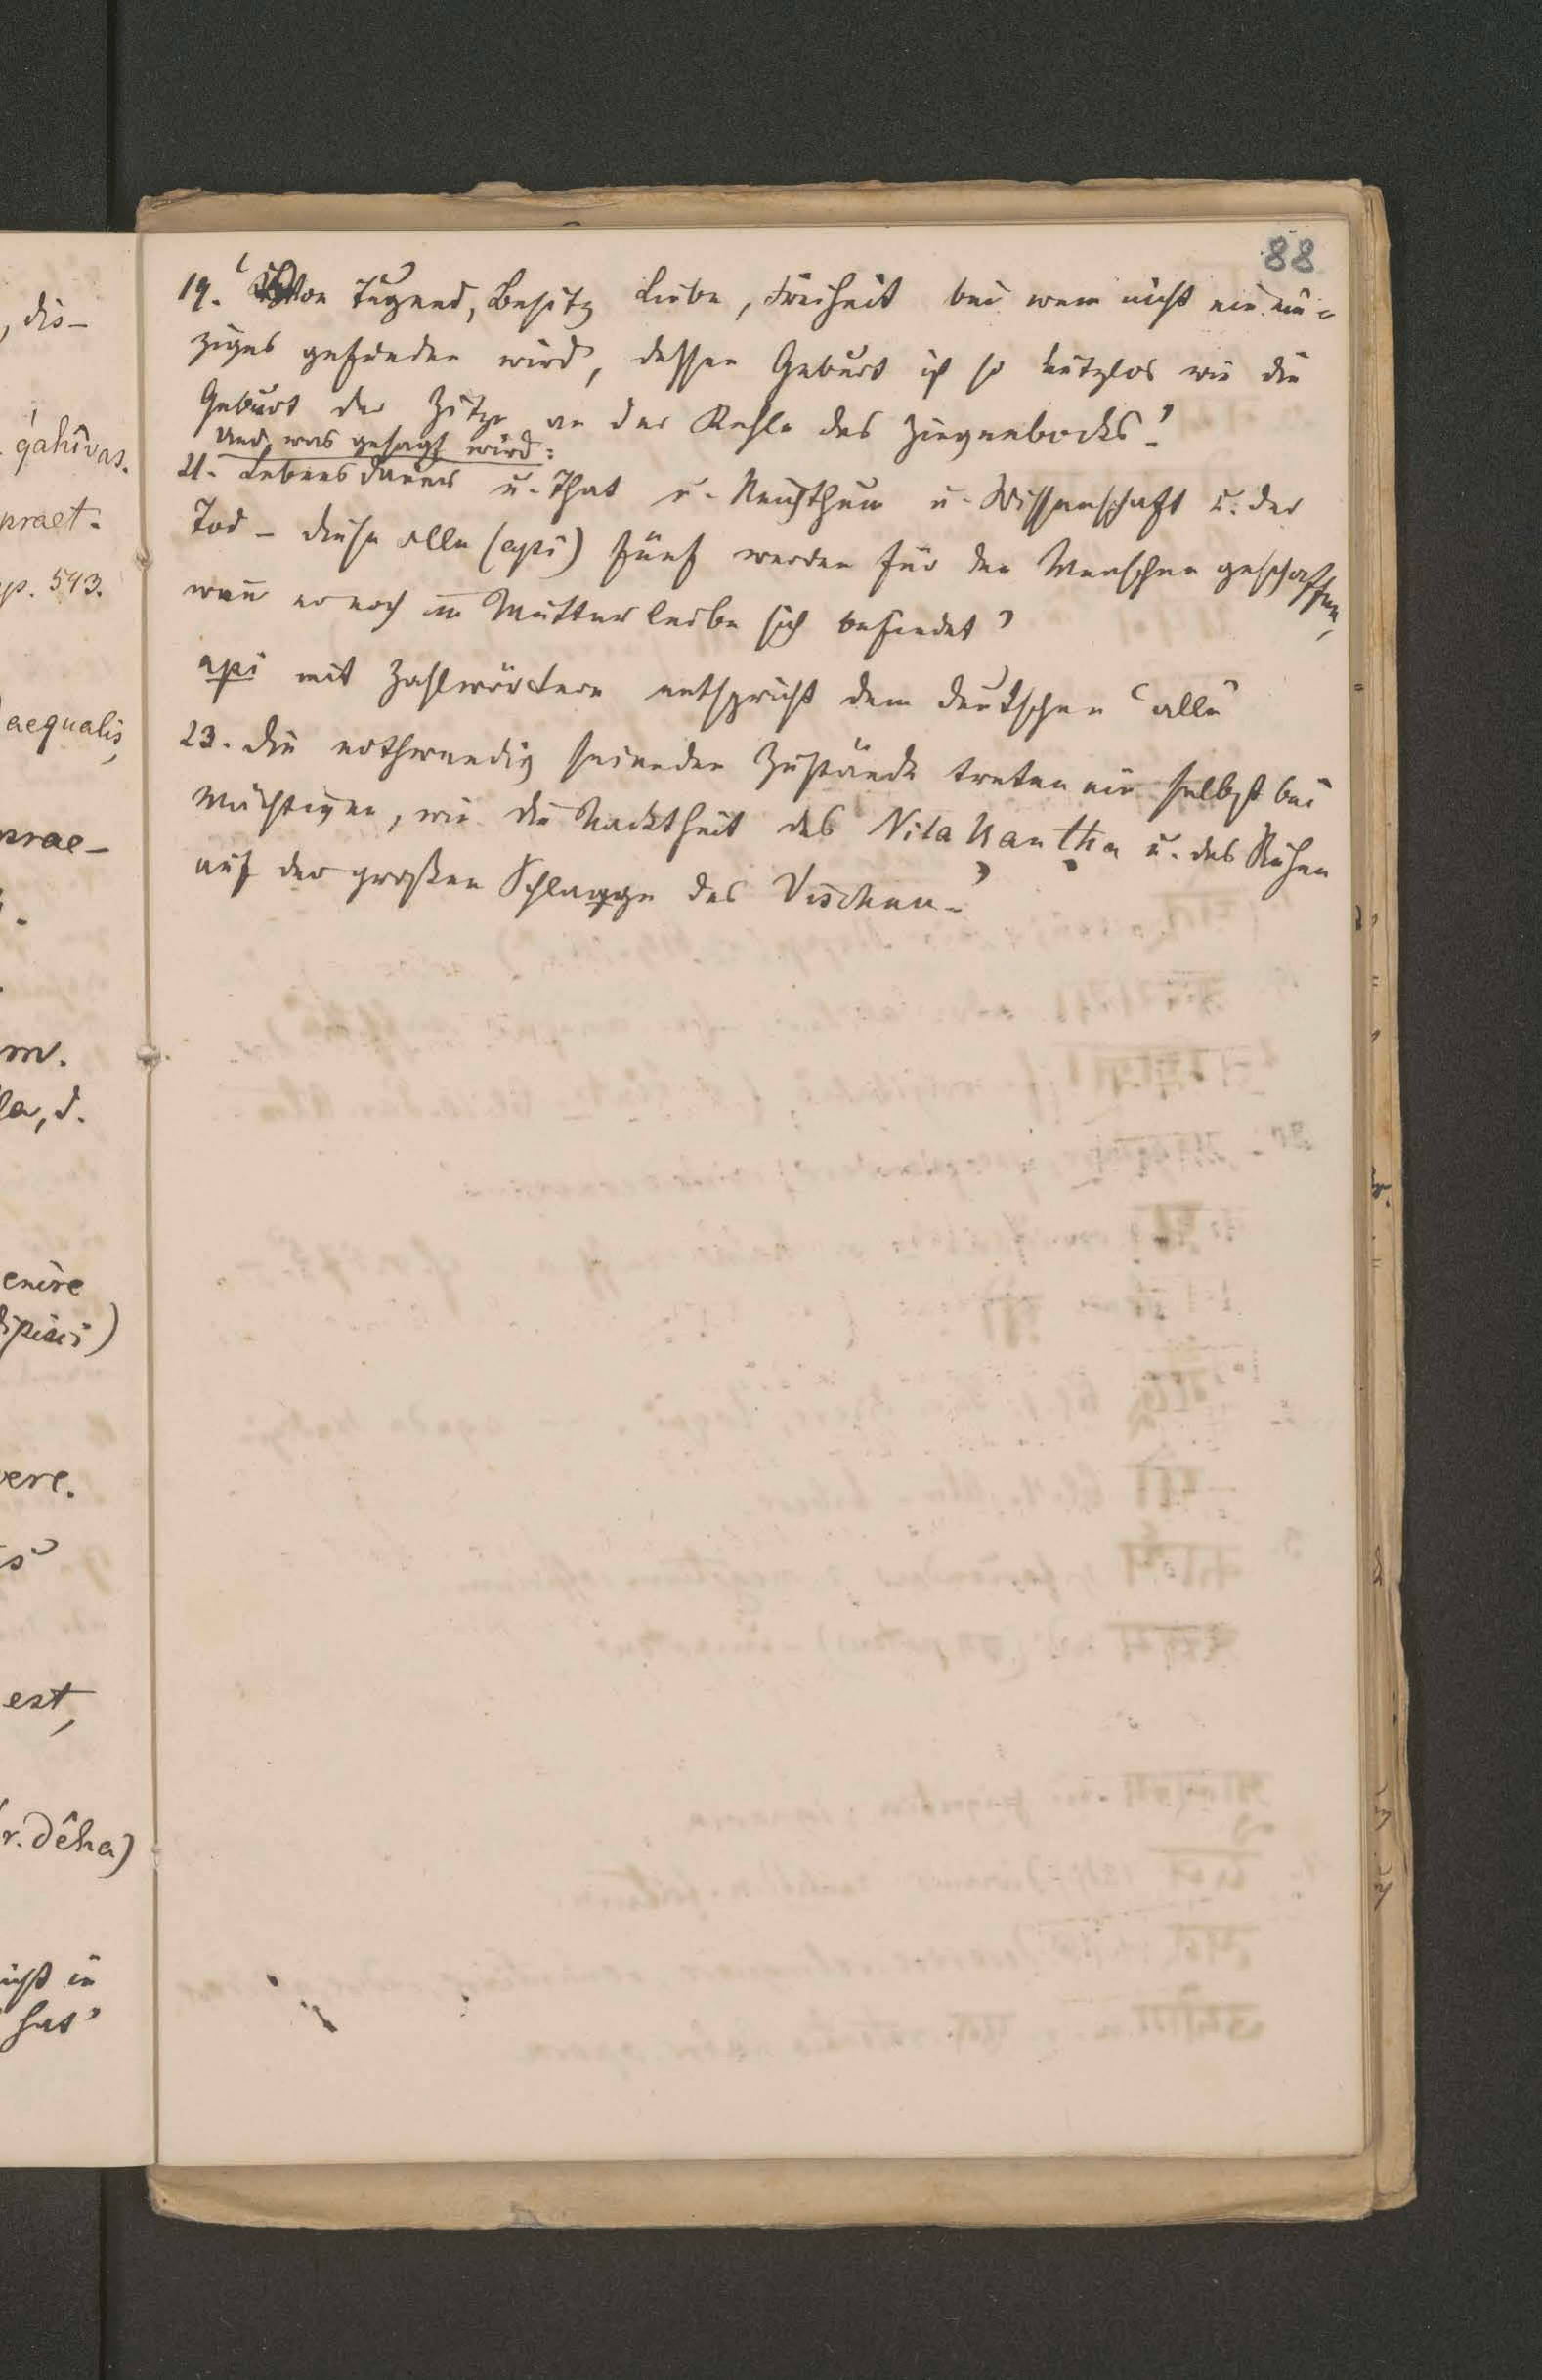 88
19. ‘Von Tugend, Besitz Liebe, Freiheit bei wem nicht ein ein-
ziges gefunden wird, dessen Geburt ist so nutzlos wie die
Geburt der Zitze an der Kehle des Ziegenbocks.’
Und, was gesagt wird:
21. Lebensdauer u. That u. Reichthum u. Wissenschaft u. der
Tod – diese alle (api) fünf werden für den Menschen geschaffen,
wenn er noch im Mutterleibe sich befindet’
api mit Zahlwörtern entspricht dem deutschen ‘alle’
23. die nothwendig seienden Zustände treten ein selbst bei
Mächtigen, wie die Nacktheit des Nilakantha u. das Ruhen
auf der großen Schlange des Vischnu.’
, dis–
gahîvas.
praet.
p. 543.
aequalis,
prae–
m.
la, d.
enire
dipisci)
vere.
est,
r. dêha)
nicht in
hat’